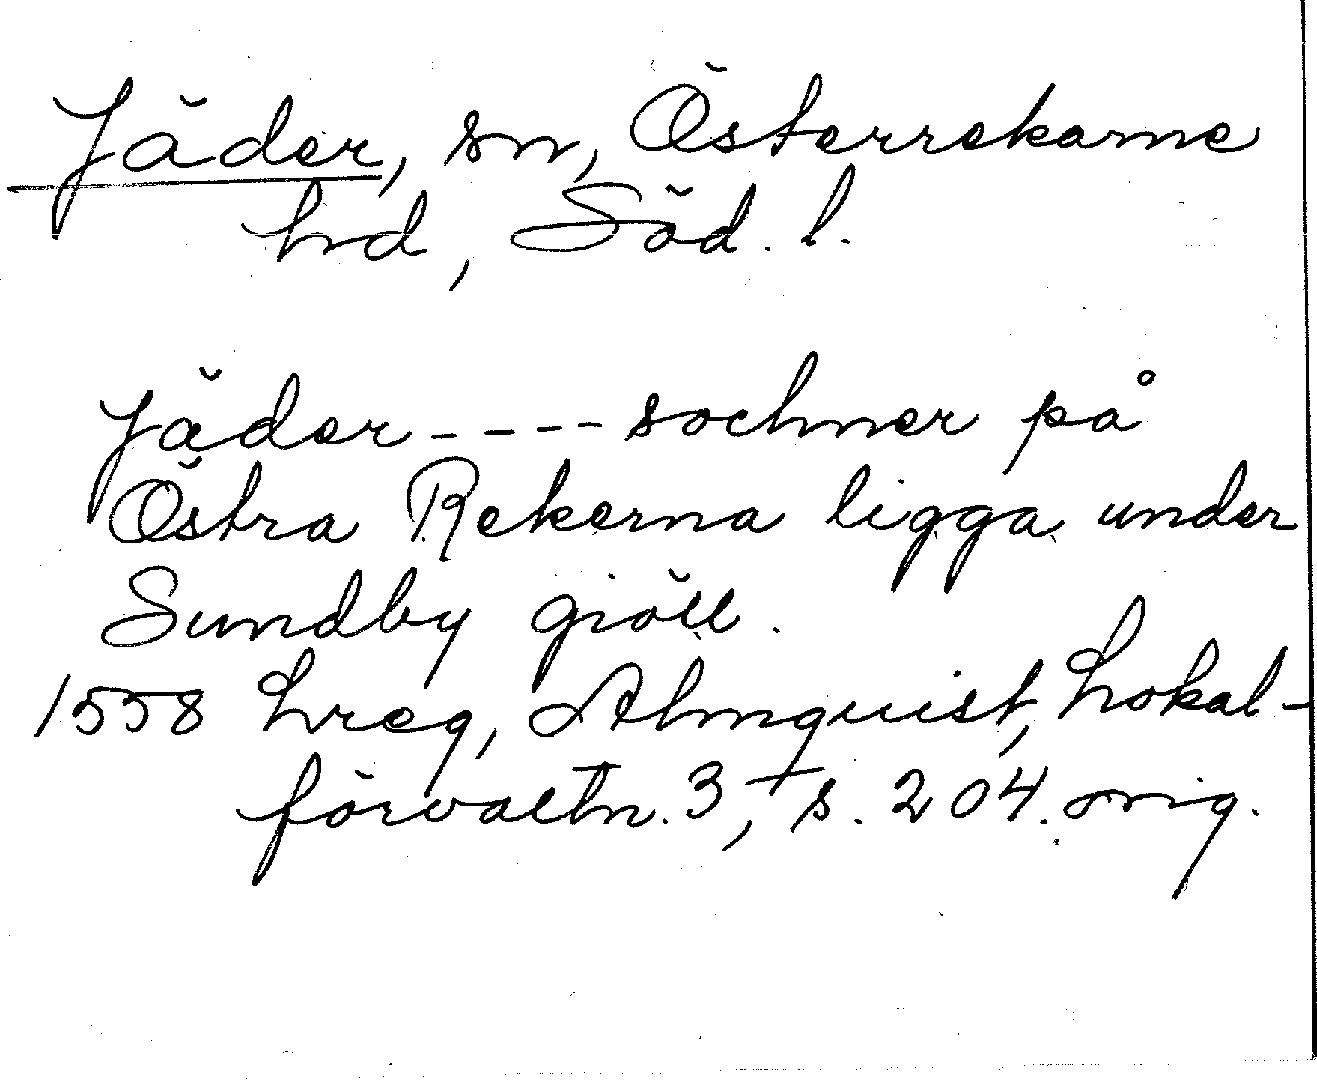 Jäder, sn, Österrekarne
hd, Söd. l.
Jäder - - - - sochner på
Östra Rekerna ligga under
Sundby giöll.
1558 Lreg, Almquist, Lokal-
förvaltn. 3, s. 204. orig.